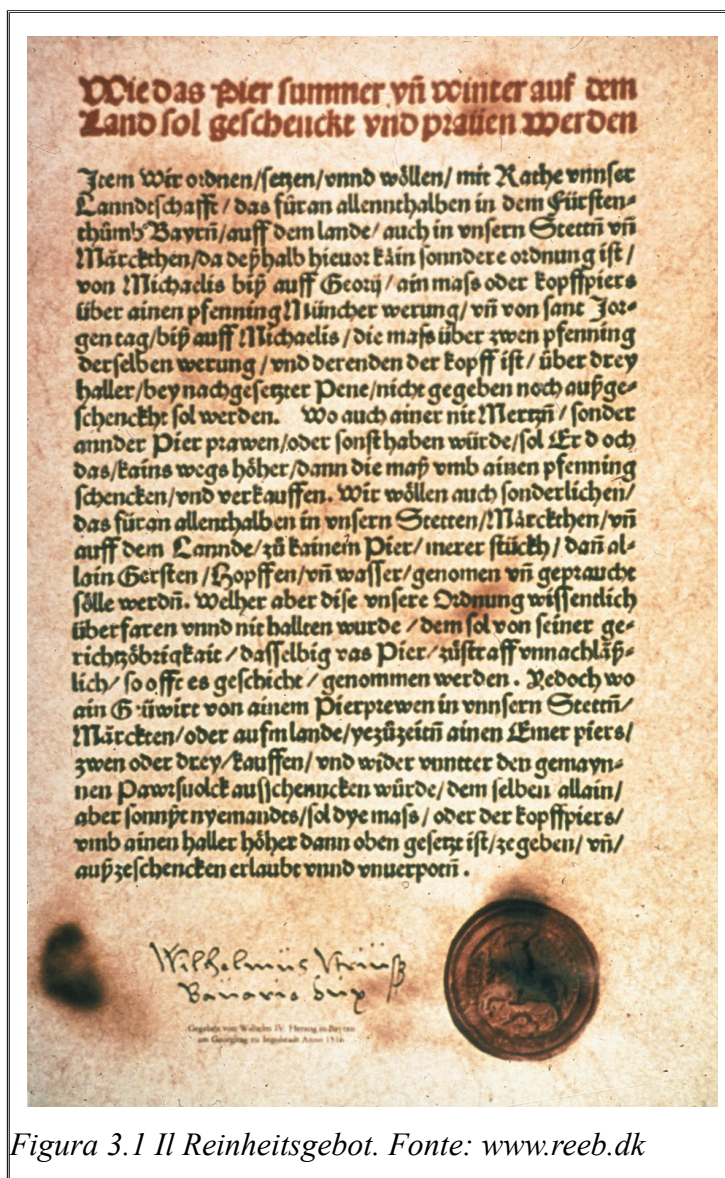 Wie das Pier summer vñ winter auf dem
Land sol geschenckt vnd praüen werden
Item Wir ordnen/setzen/vnnd wöllen/ mit Rathe vnnser
Lanndtschafft / das für an allennthalben in dem Fürsten-
thümb Bayrñ/auff dem lande/ auch in vnsern Stettñ vñ
Märckthen/da deßhalb hieuor kain sonndere ordnung ist/
von Michaelis biß auff Georij/ ain mass oder kopffpiers
über ainen pfenning Müncher werung/ vñ von sant Jor-
gentag/biß auff Michaelis/die mass über zwen pfenning
derselben werung/vnd derenden der kopff ist/über drey
haller/bey nachgesetzter Pene/nicht gegeben noch außge-
schenckht sol werden. Wo auch ainer nit Mertzñ/sonder
annder Pier prawen/oder sonst haben würde/sol Er doch
das/kains wegs höher/dann die maß vmb ainen pfenning
schencken/vnd verkauffen. Wir wöllen auch sonderlichen/
das für an allenthalben in vnsern Stetten/Märckthen/vñ
auff dem Lannde/zü kainem Pier/merer stückh/dañ al-
lain Gersten/Hopffen/vñ wasser/genomen vñ gepraucht
sölle werdñ. Welher aber dise vnsere Ordnung wissentlich
überfaren vnnd nit hallten wurde/dem sol von seiner ge-
richtzöbrigkait/dasselbig vas Pier/züstraff vnnachläß-
lich/so offt es geschicht/genommen werden. Yedoch wo
ain Güwirt von ainem Pierprewen in vnnsern Stettñ/
Märckten/oder aufm lande/yezüzeitñ ainen Emer piers/
zwen oder drey/kauffen/vnd wider vnntter den gemayn-
nen Pawrsuolck ausschenncken würde/dem selben allain/
aber sonnßt nyemandts/sol dye mass/oder der kopffpiers/
vmb ainen haller höher dann oben gesetzt ist/zegeben/vñ/
außzeschencken erlaubt vnnd vnuerpotñ.
Wilhelmüs
Bauarie Dux
Gegeben von Wilhelm IV. Herzog in Bayern
am Georgitag zu Ingolstadt Anno 1516
Figura 3.1 Il Reinheitsgebot. Fonte: www.reeb.dk